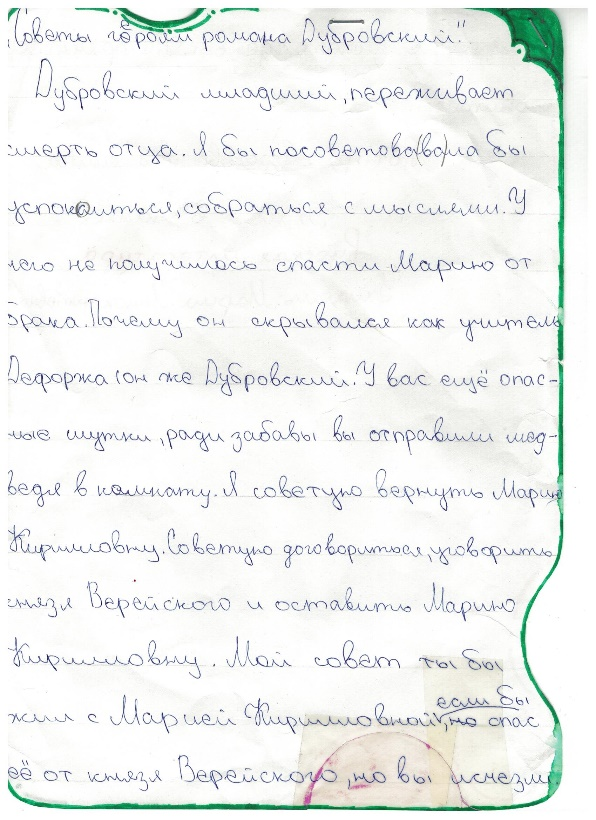 „Советы героям романа Дубровский."
Дубровский младший, переживает
смерть отца. Я бы посоветова(ва)ла бы
успокоиться, собраться с мыслями. У
него не получилось спасти Марию от
брака. Почему он скрывался как учитель
Дефоржа (он же Дубровский. У вас ещё опас-
ные шутки, ради забавы вы отправили мед-
ведя в комнату. Я советую вернуть Марию
Кирилловну. Советую договориться, уговорить
князя Верейского и оставить Марию
Кирилловну. Мой совет ты бы
если бы
жил с Марией Кирилловной, но спас
её от князя Верейского, но вы исчезли.